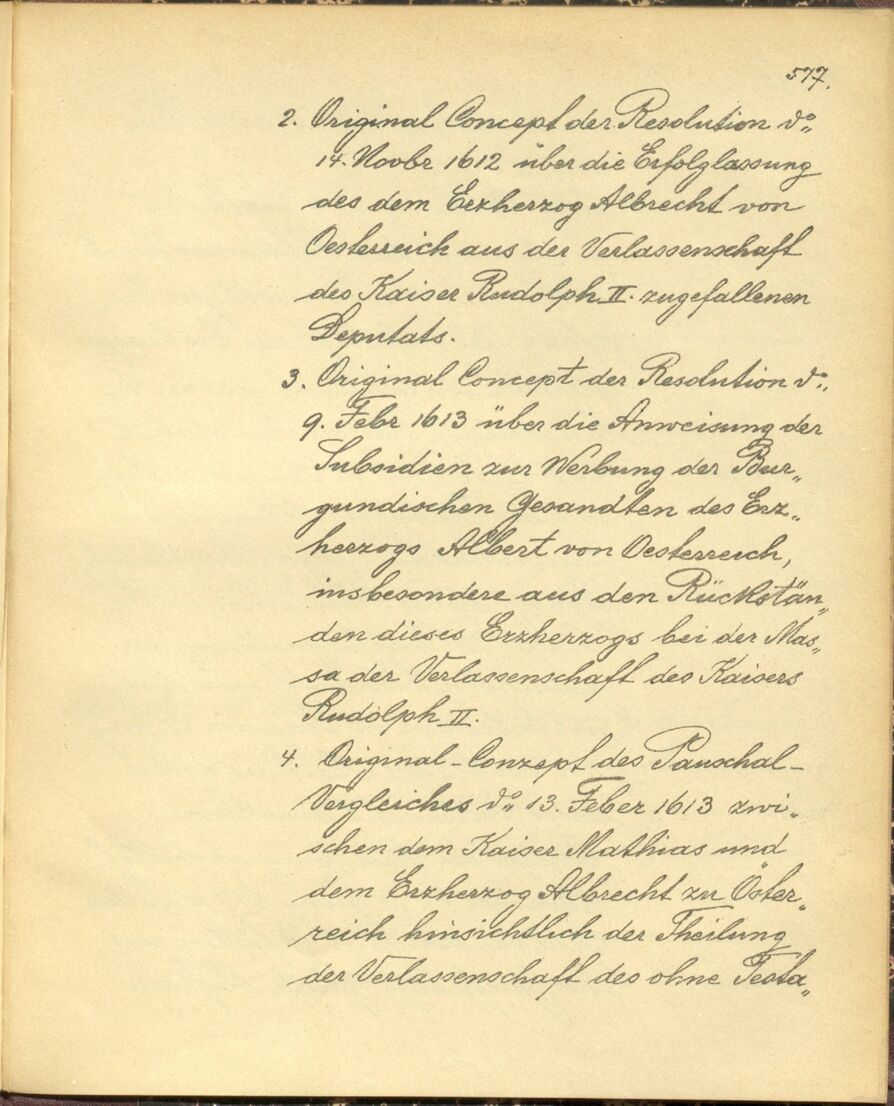 577.
2. Original Concept der Resolution dº„
14. Novbr 1612 über die Erfolglassung
des dem Erzherzog Albrecht von
Oesterreich aus der Verlassenschaft
des Kaiser Rudolph II. zugefallenen
Deputats.
3. Original Concept der Resolution dº„
9. Febr 1613 über die Anweisung der
Subsidien zur Werbung der Bur„
gundischen Gesandten des Erz„
herzogs Albert von Oesterreich,
insbesondere aus den Rückstän„
den dieses Erzherzogs bei der Mas„
sa der Verlassenschaft des Kaisers
Rudolph II.
4. Original-Conzept des Pauschal-
Vergleiches dº„ 13. Feber 1613 zwi„
schen dem Kaiser Mathias und
dem Erzherzog Albrecht zu Öster„
reich hinsichtlich der Theilung
der Verlassenschaft des ohne Testa„